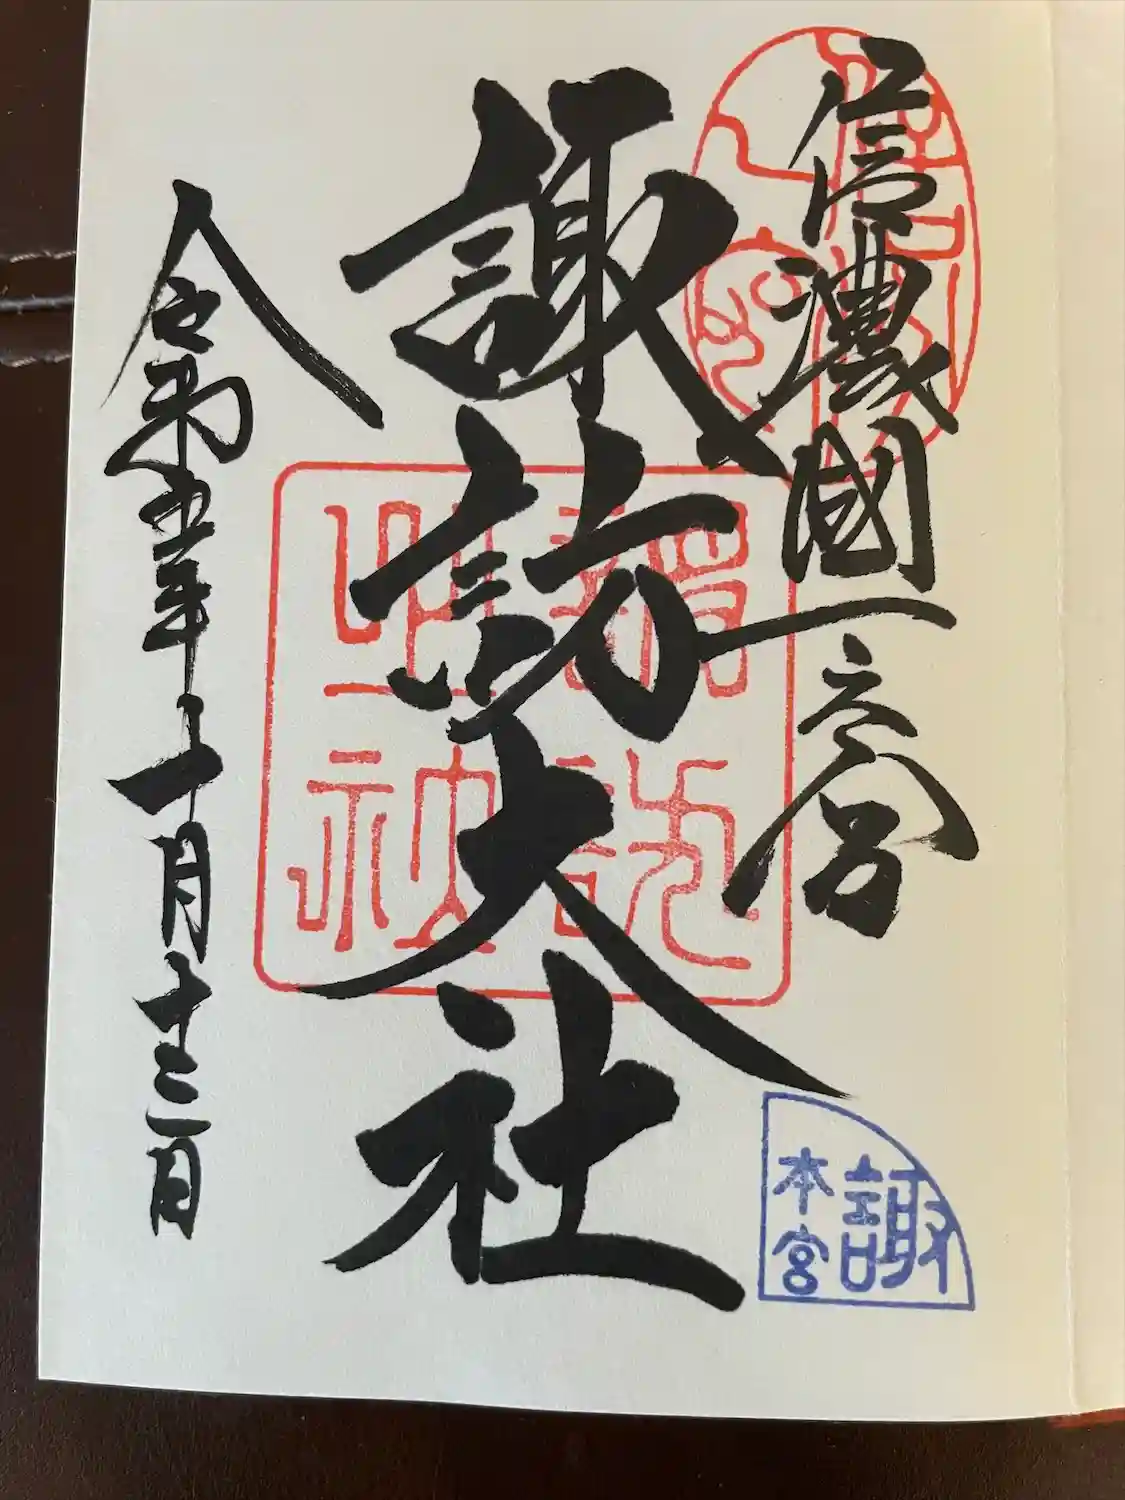 信濃國一之宮
諏訪大社
令和五年十月十三日
諏
本宮